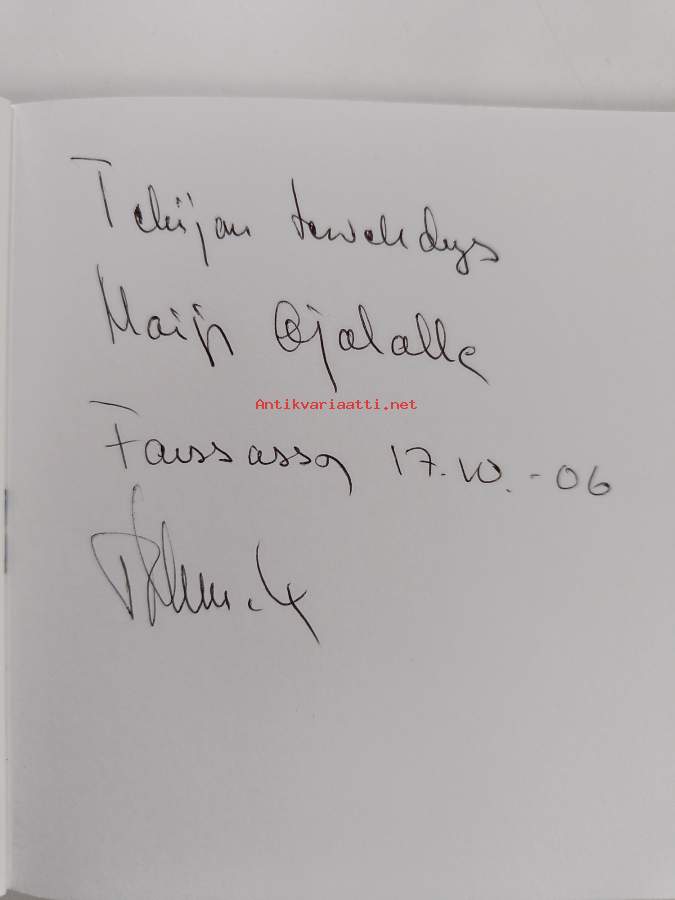 Tekijän tervehdys
Maija Ojalalle
Antikvariaatti.net
Forssassa 17.10.-06